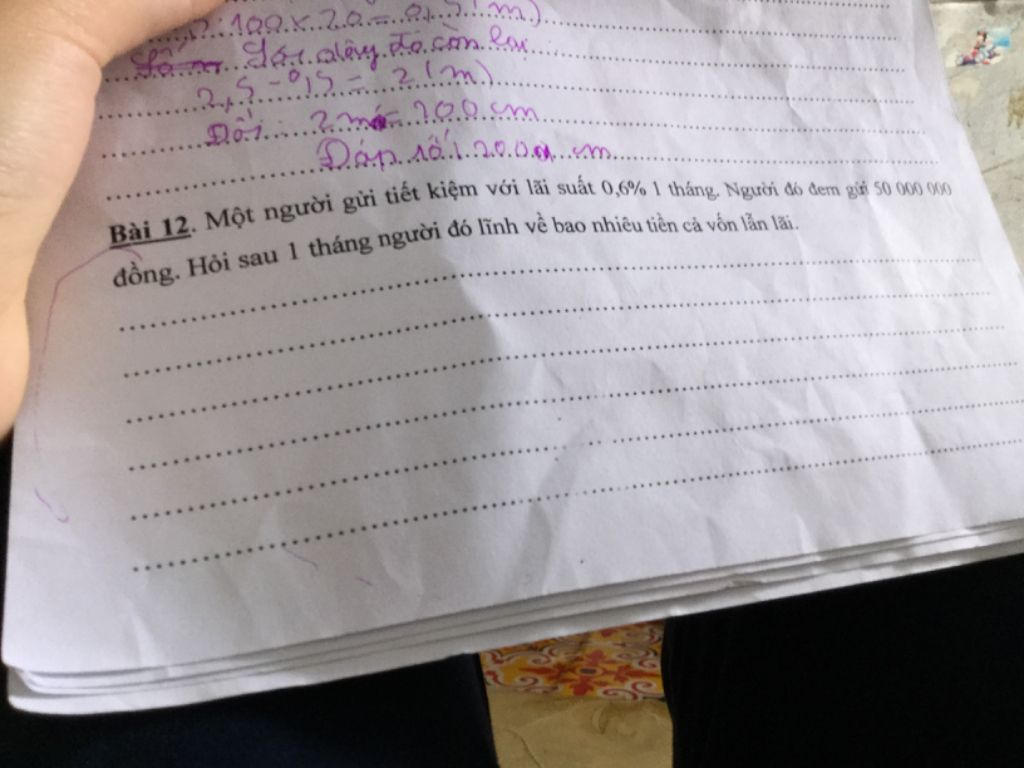 : 100 x 20 = 0,5 (m)
Sợi dây đó còn lại
2,5 - 0,5 = 2 (m)
Đổi: 2 m = 200 cm
Đáp số: 200 cm
Bài 12. Một người gửi tiết kiệm với lãi suất 0,6% 1 tháng. Người đó đem gửi 50 000 000
đồng. Hỏi sau 1 tháng người đó lĩnh về bao nhiêu tiền cả vốn lẫn lãi.